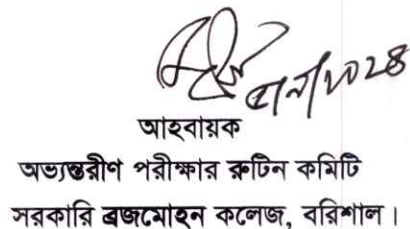 আহবায়ক
অভ্যন্তরীণ পরীক্ষার রুটিন কমিটি
সরকারি ব্রজমোহন কলেজ, বরিশাল।